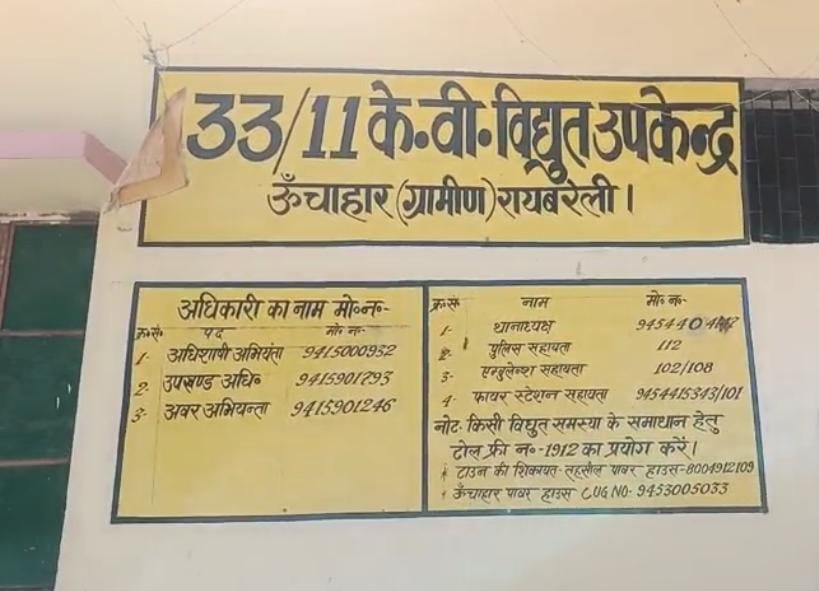 33/11 के॰वी॰विद्युत उपकेन्द्र
ऊँचाहार (ग्रामीण) रायबरेली।
अधिकारी का नाम मो॰न॰-
क्र॰सं॰ पद मो॰ न॰-
1- अधिशाषी अभियंता 9415000932
2- उपखण्ड अधि॰ 9415901793
3- अवर अभियन्ता 9415901246
क्र॰सं॰ नाम मो॰ न॰-
1- थानाध्यक्ष
2- पुलिस सहायता 112
3- एम्बुलेन्श सहायता 102/108
4- फायर स्टेशन सहायता 9454415343/101
नोट- किसी विद्युत समस्या के समाधान हेतु
टोल फ्री न॰-1912 का प्रयोग करें।
टाउन की शिकायत-तहसील पावर हाउस-8004912109
ऊँचाहार पावर हाउस CUG NO- 9453005033